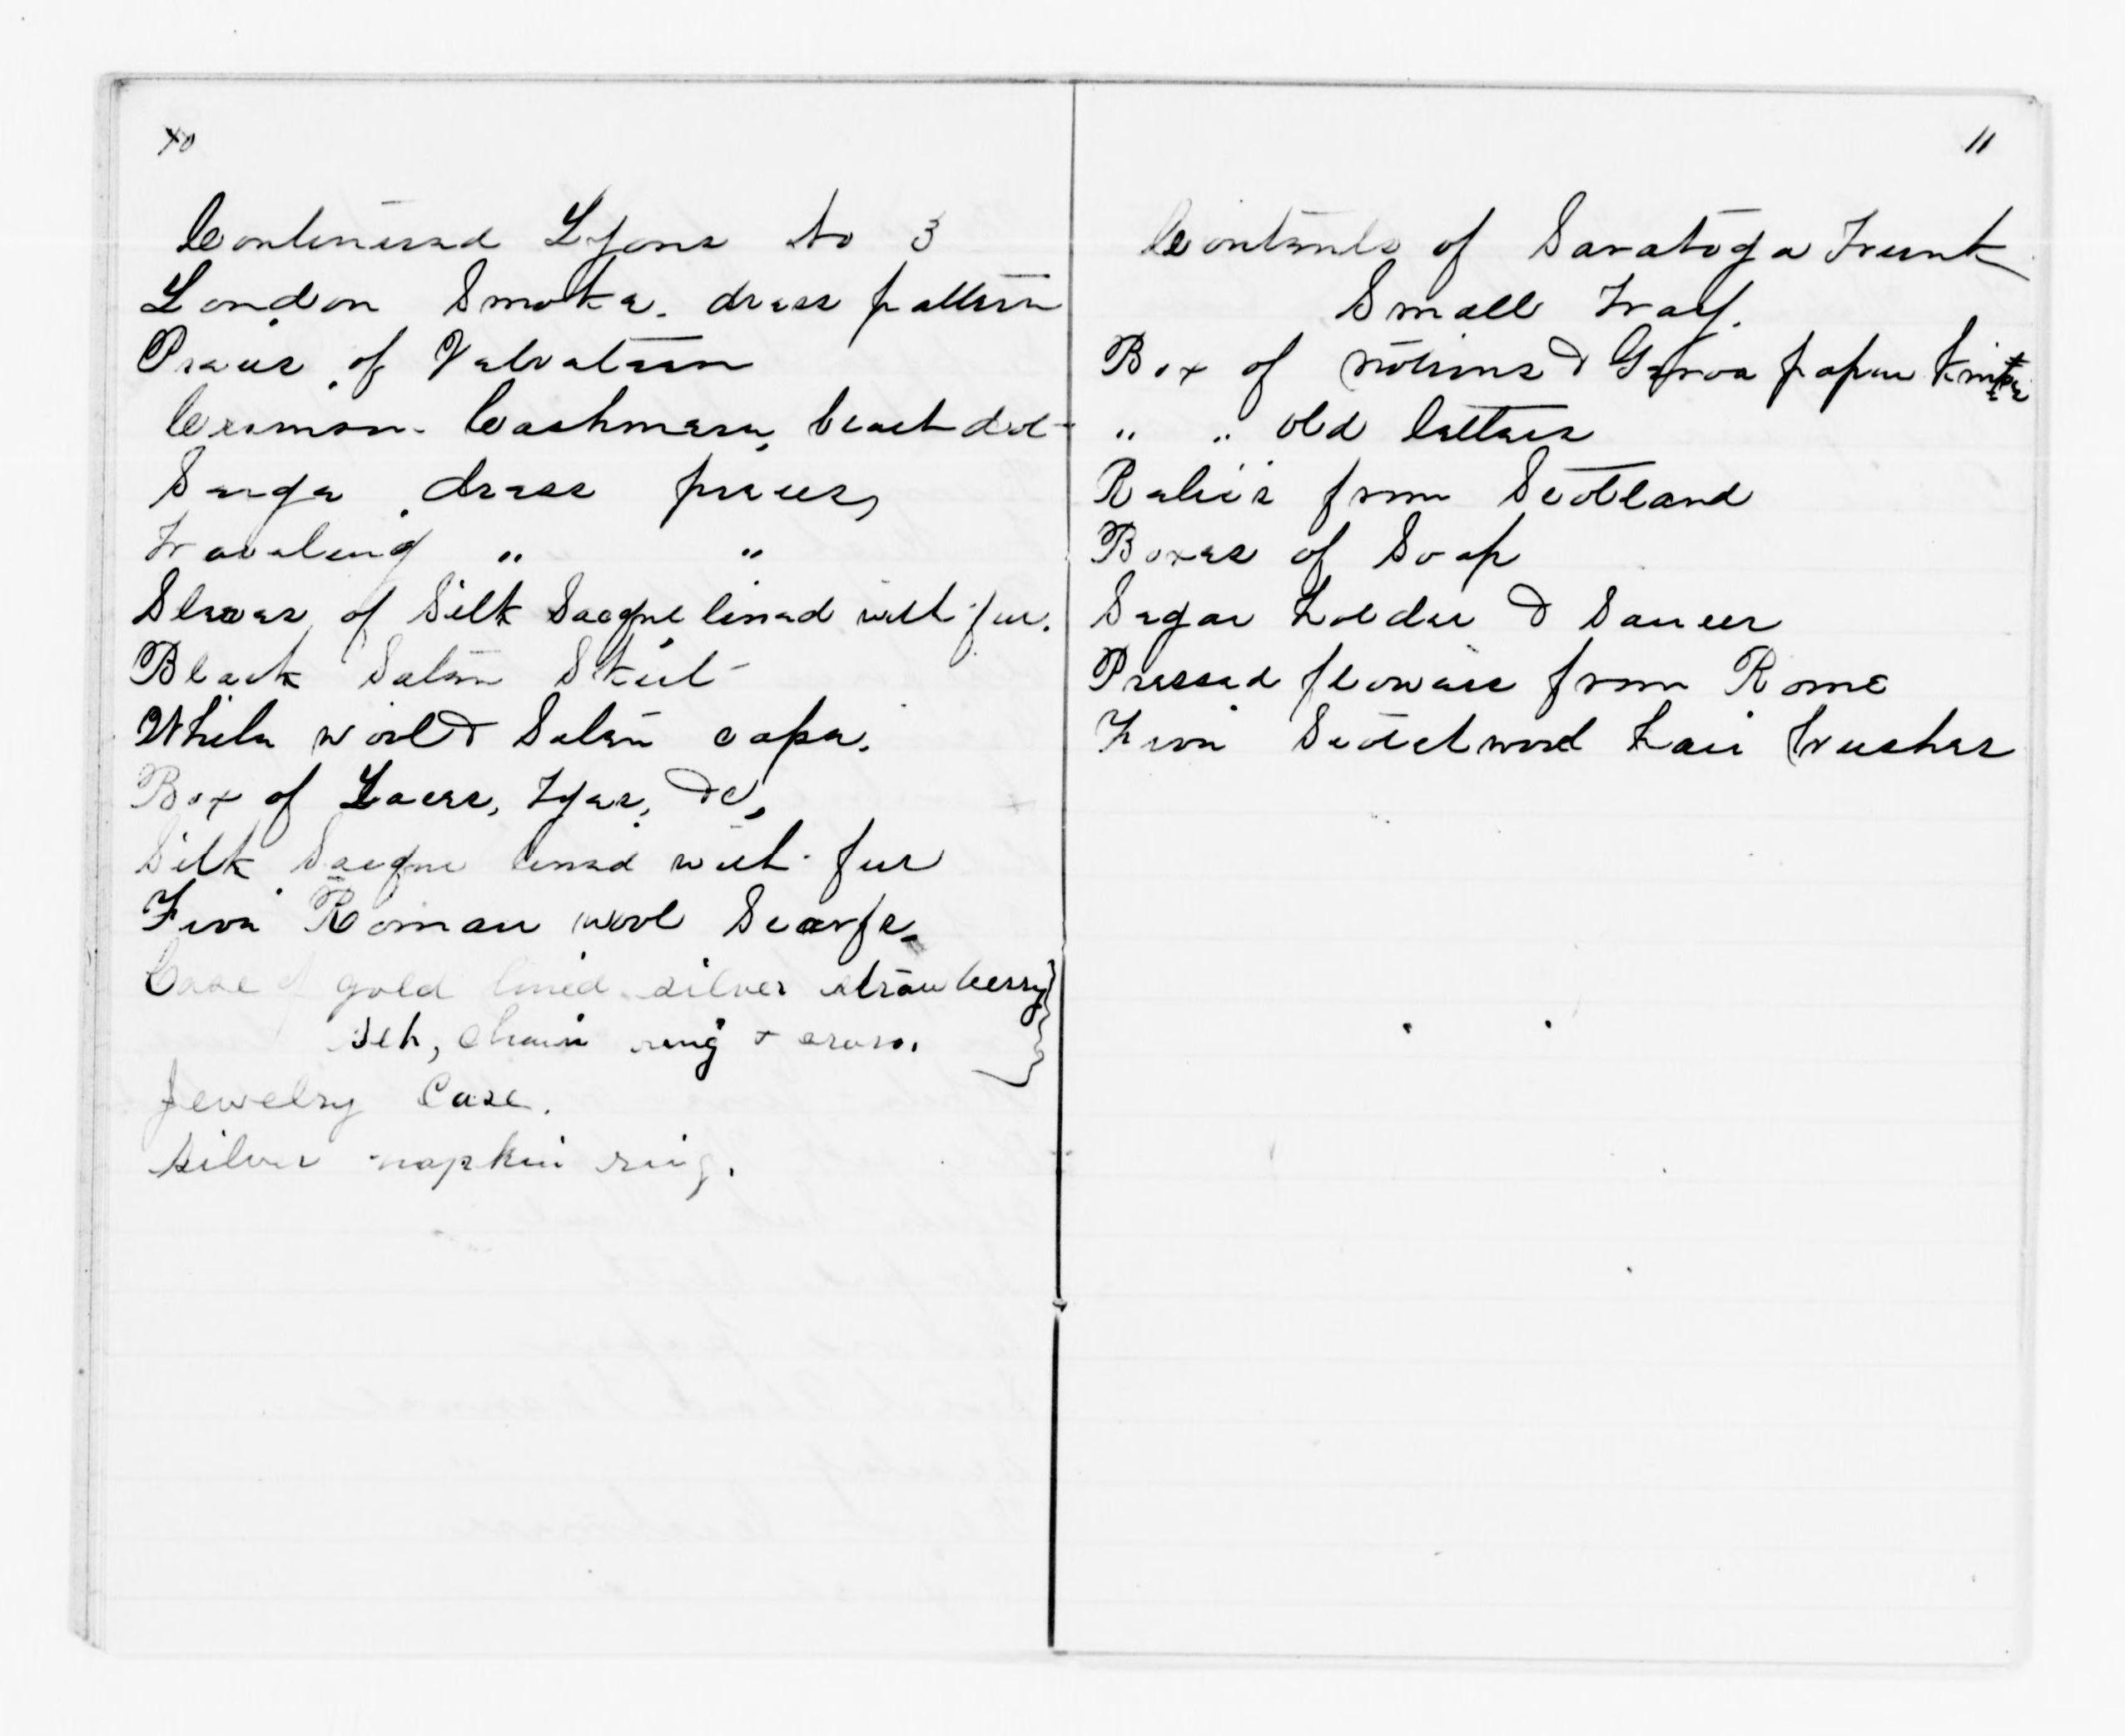 10
Continued Lyons No 3
London Smoke. dress pattern
Pieces of Velveteen
Crimson Cashmere, black dot
Serge dress pieces,
Traveling " "
Sleeves of Silk Sacque lined with fur.
Black Satin Skirt
White wool & Satin cape.
Box of Laces, Tyes, &c,
Silk Sacque lined with fur
Five Roman wool Scarfs
Case of gold lined silver strawberry
set, chain ring & cross.
Jewelry Case.
silver napkin ring.
11
Contents of Saratoga Trunk
Small Tray.
Box of notions & Genoa paper knife
" " old letters
Relics from Scotland
Boxes of Soap
Sugar holder & Saucer
Pressed flowers from Rome
Five Scotch wood hair brushes